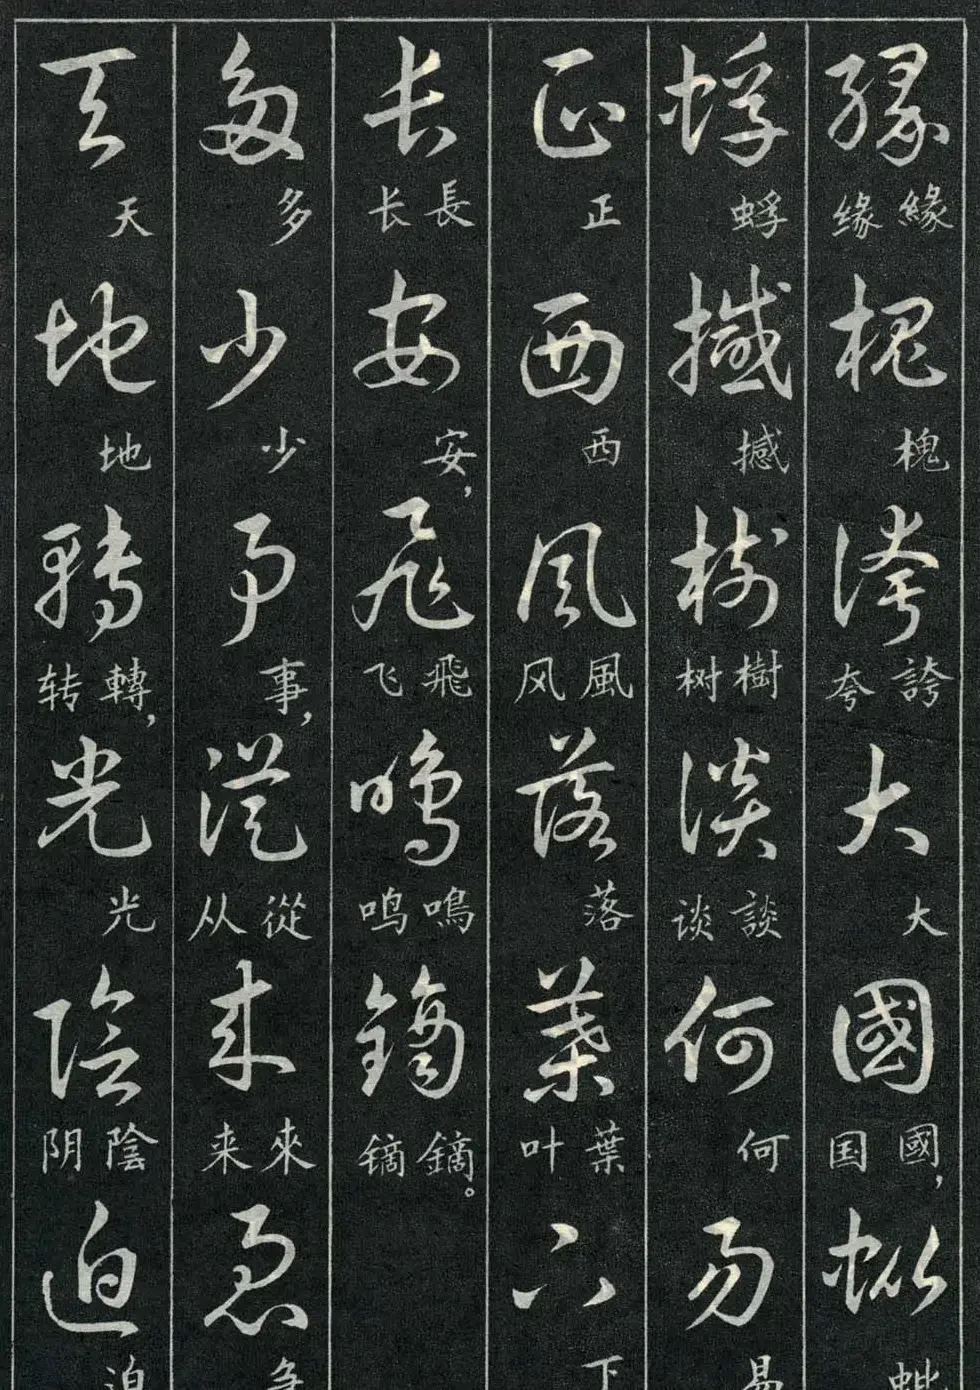 緣 緣 缘 槐 槐 誇 誇 夸 大 大 國 國， 国 蚍 蚍
蜉 蜉 撼 撼 樹 樹 树 談 談 谈 何 何 易 易
正 正 西 西 風 風 风 落 落 葉 葉 叶 下 下
長 長 长 安 安， 飛 飛 飞 鳴 鳴 鸣 鏑 鏑。 镝
多 多 少 少 事 事， 從 從 从 來 來 来 急 急
天 天 地 地 轉 轉， 转 光 光 陰 陰 阴 迫 迫